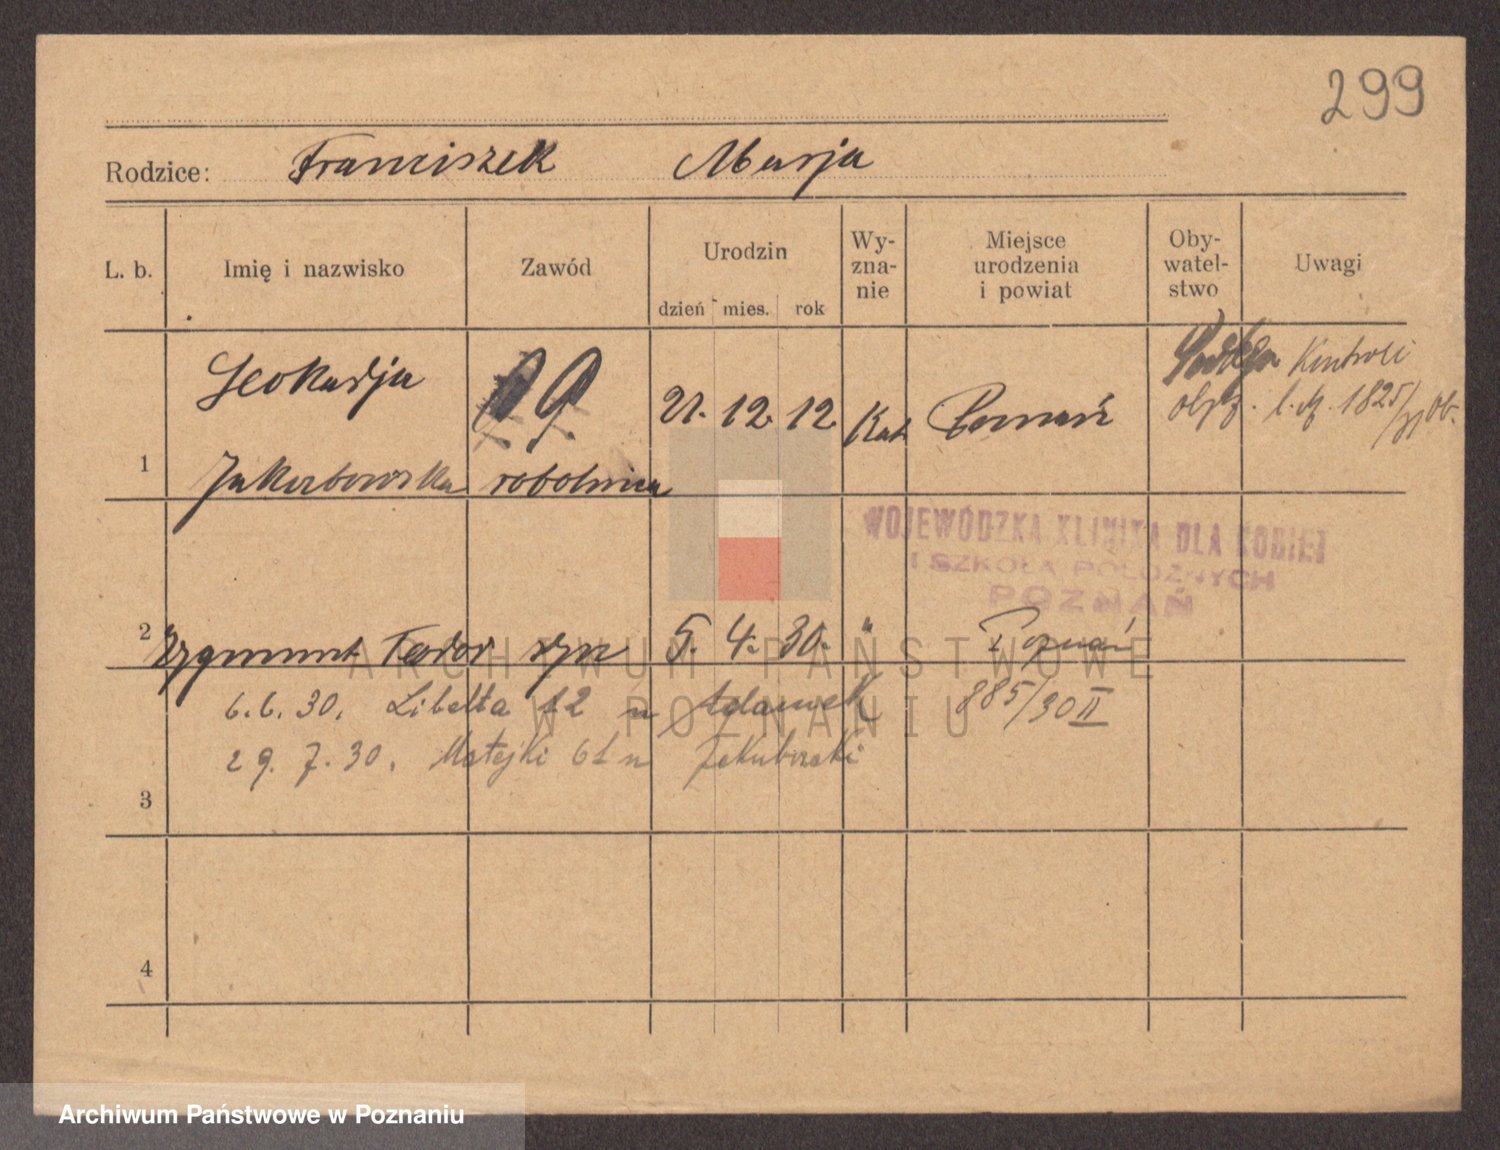 299
Rodzice: Franciszek Marja
L. b. Imię i nazwisko Zawód Urodzin dzień mies. rok Wy-zna-nie Miejsce urodzenia i powiat Oby-watel-stwo Uwagi
1 Leokadja Jakubowska robotnica 21. 12. 12. Kat. Poznań Podlega Kontroli
l. dz. 1825/
WOJEWÓDZKA KLINIKA DLA KOBIET
I SZKOŁA POŁOŻNYCH
POZNAŃ
2 Zygmunt Teodor syn 5. 4. 30. " Poznań
6. 6. 30. Libelta 12 u Adamek 885/30 II
29. 7. 30. Matejki 61 u
3
4
ARCHIWUM PAŃSTWOWE
W POZNANIU
Archiwum Państwowe w Poznaniu